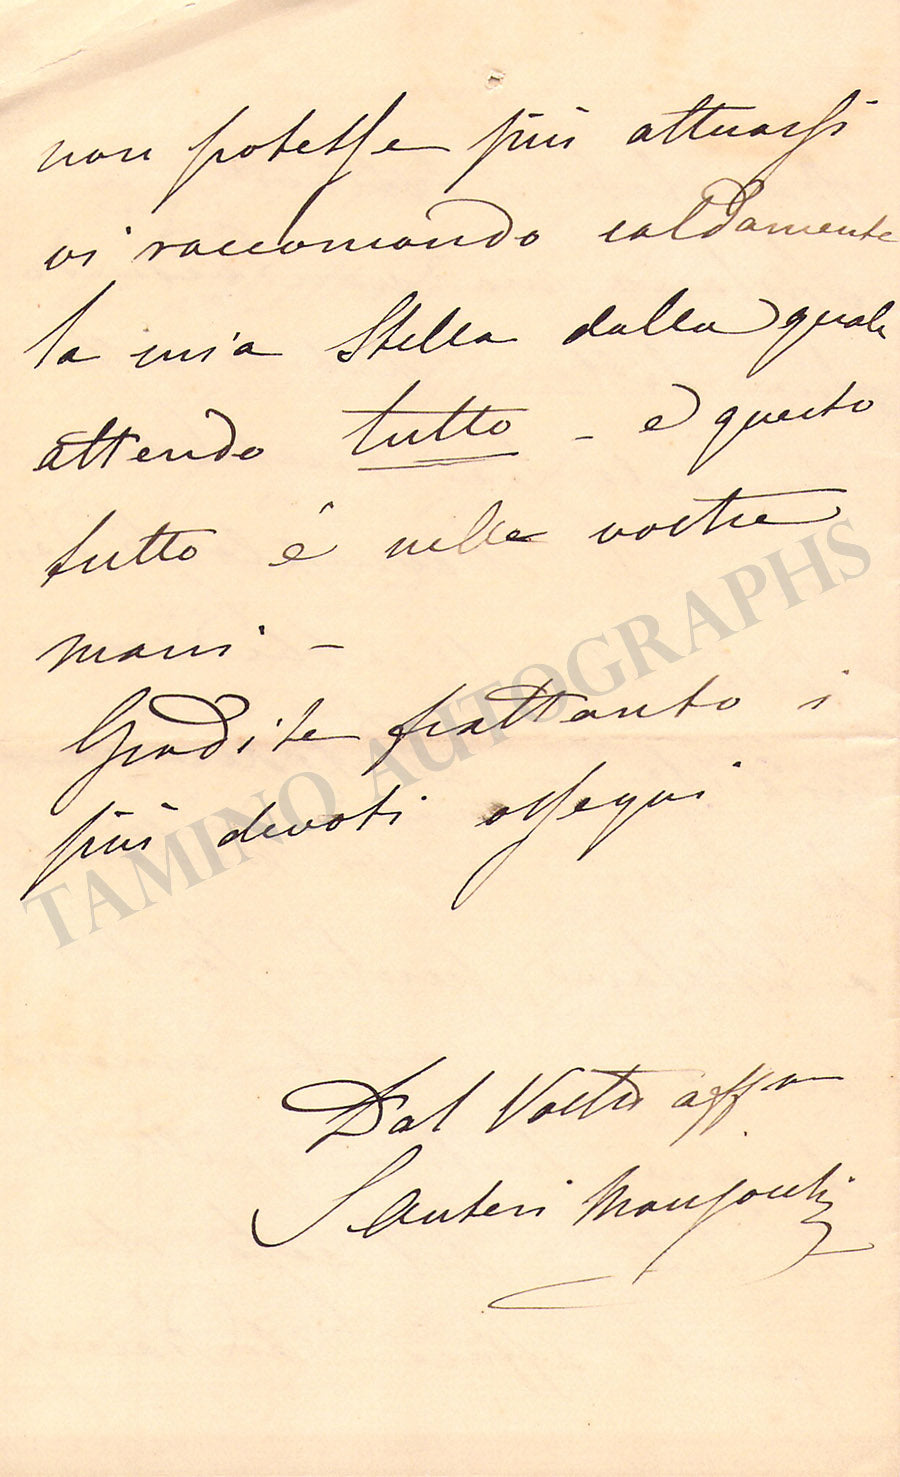 non potesse più attuarsi
vi raccomando caldamente
la mia Stella dalla quale
attendo tutto - e questo
tutto é nelle vostre
mani -
Gradite frattanto i
più devoti ossequi
Dal Vostro affmo
S Auteri Manzocchi
TAMINO AUTOGRAPHS